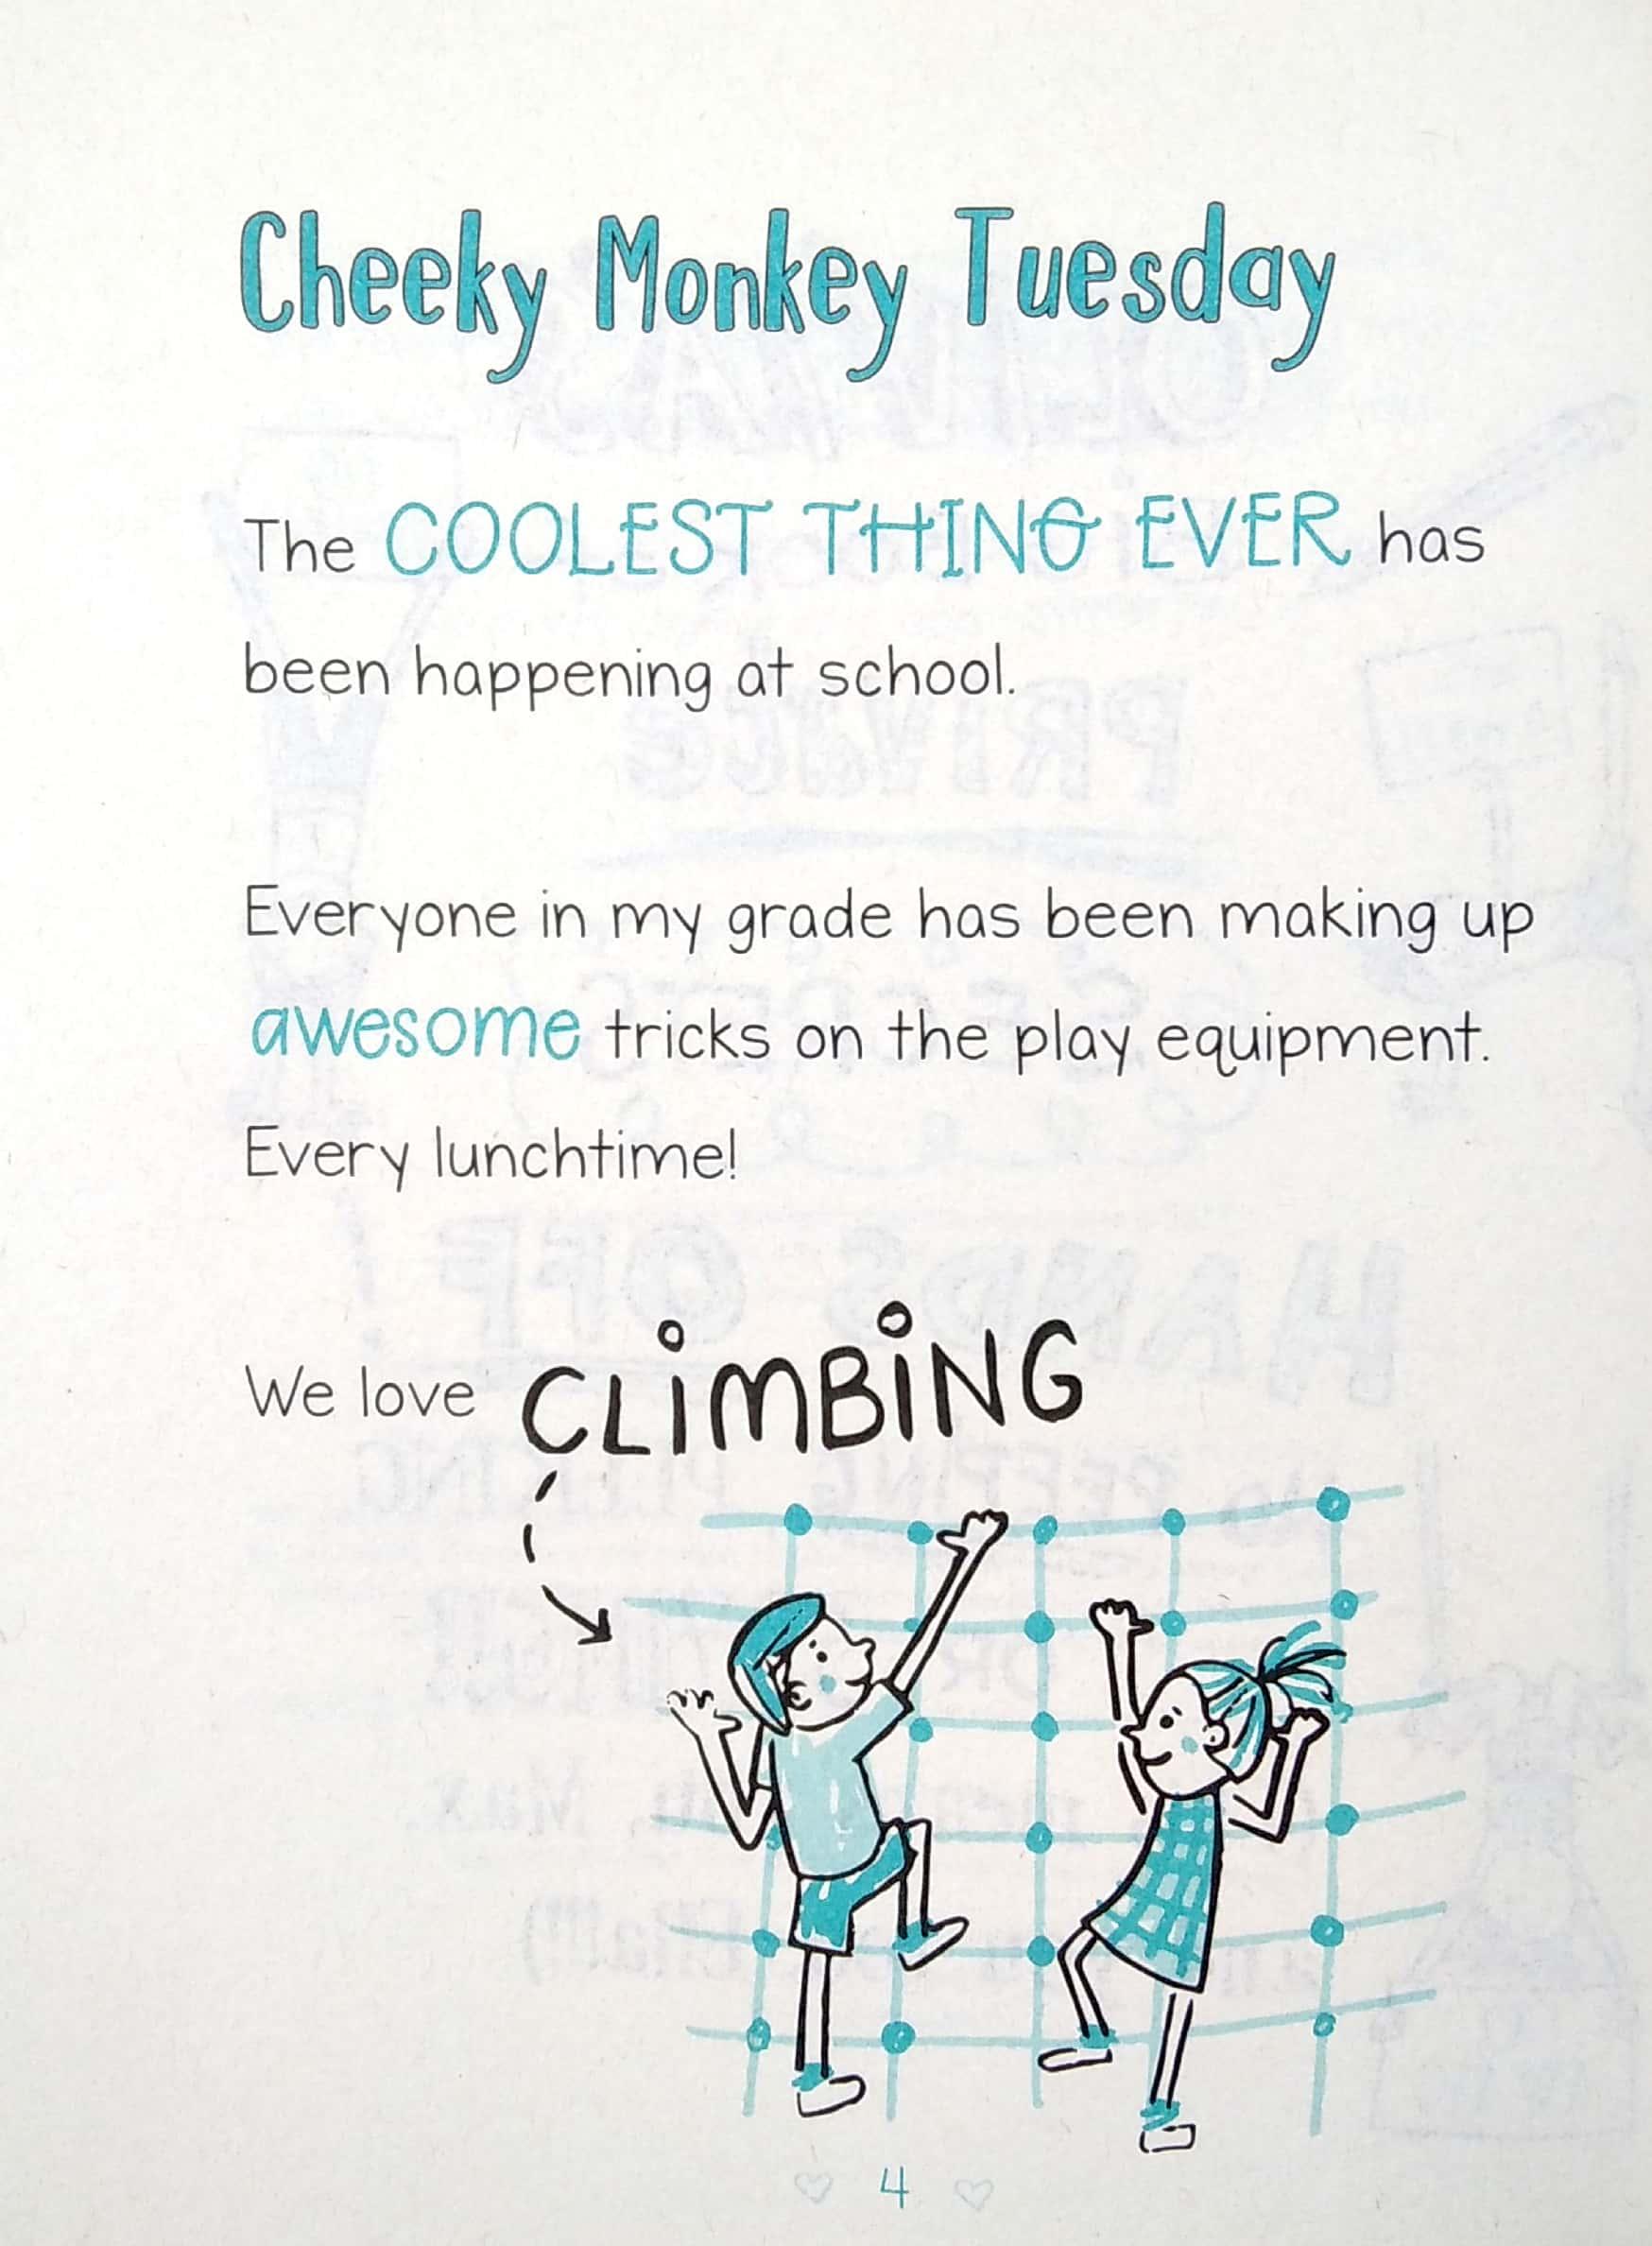 Cheeky Monkey Tuesday
The COOLEST THING EVER has
been happening at school.
Everyone in my grade has been making up
awesome tricks on the play equipment.
Every lunchtime!
We love CLiMBiNG
4